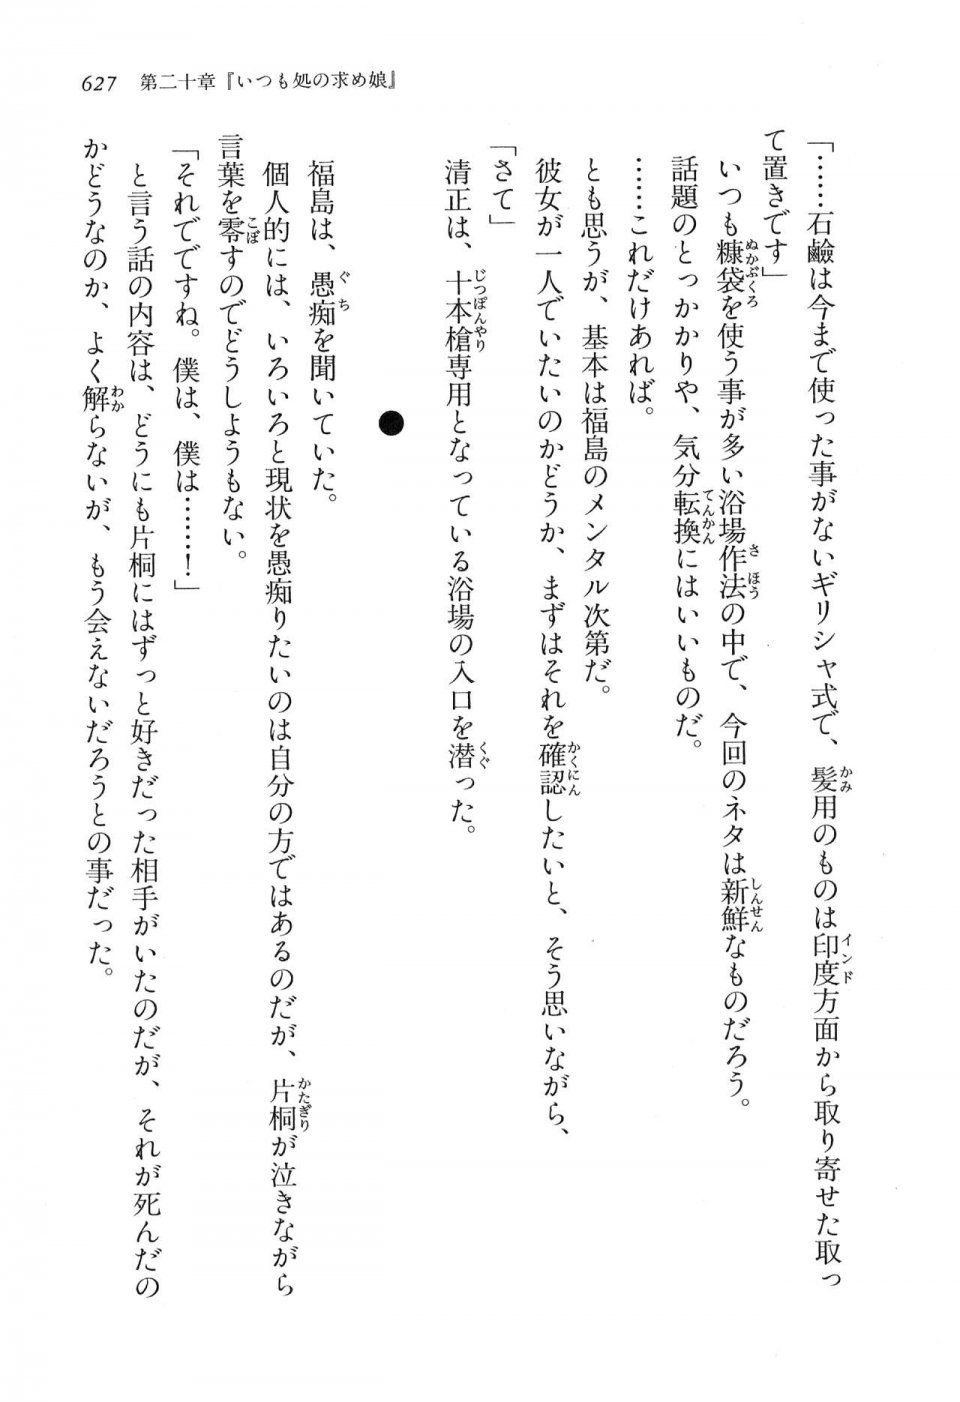 627　第二十章『いつも処の求め娘』
「……石鹼は今まで使った事がないギリシャ式で、髪用のものは印度方面から取り寄せた取っ
て置きです」
　いつも糠袋を使う事が多い浴場作法の中で、今回のネタは新鮮なものだろう。
話題のとっかかりや、気分転換にはいいものだ。
……これだけあれば。
　とも思うが、基本は福島のメンタル次第だ。
　彼女が一人でいたいのかどうか、まずはそれを確認したいと、そう思いながら、
「さて」
　清正は、十本槍専用となっている浴場の入口を潜った。
●
　福島は、愚痴を聞いていた。
　個人的には、いろいろと現状を愚痴りたいのは自分の方ではあるのだが、片桐が泣きながら
言葉を零すのでどうしようもない。
「それでですね。僕は、僕は……！」
　と言う話の内容は、どうにも片桐にはずっと好きだった相手がいたのだが、それが死んだの
かどうなのか、よく解らないが、もう会えないだろうとの事だった。